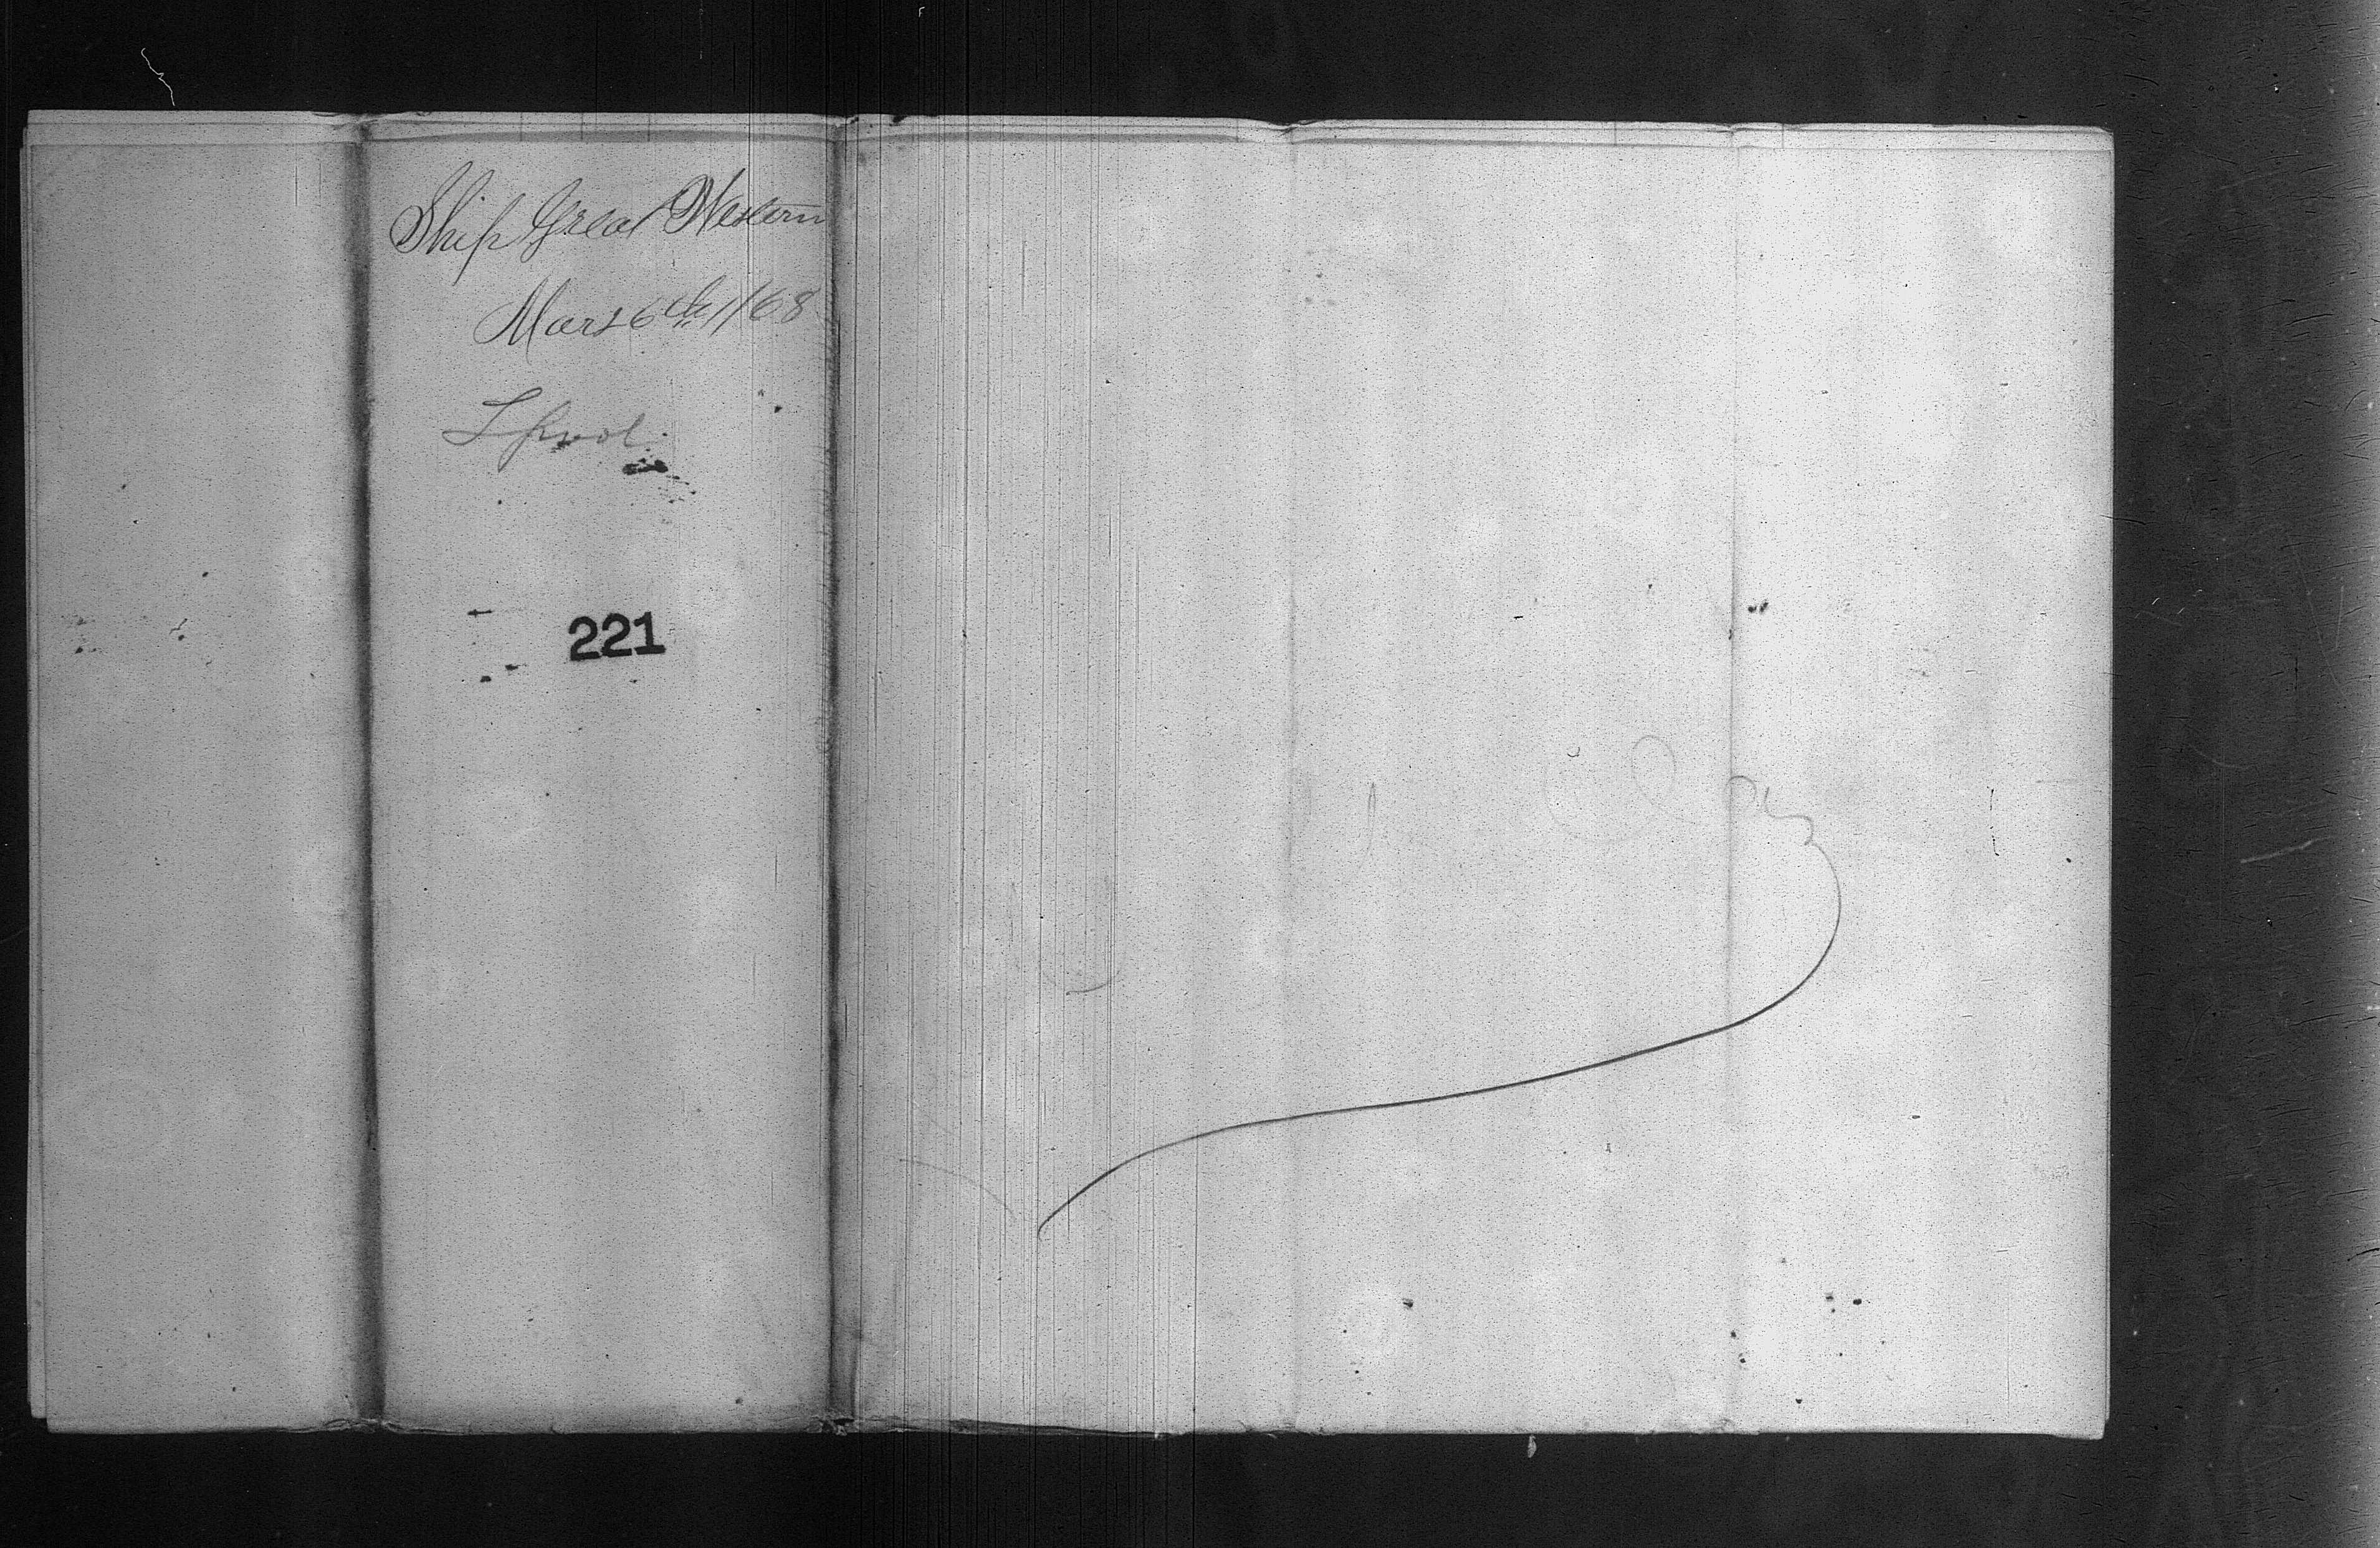 Ship Great Western
Mar 26th /68
Lpool.
221